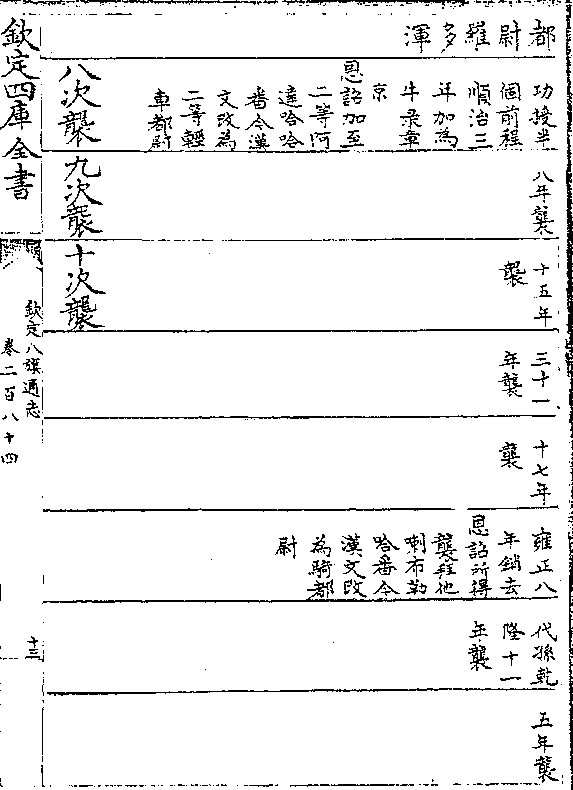 都尉羅多渾
功授半
個前程
順治三
年加為
牛录章
京
恩詔加至
二等阿
達哈哈
番今漢
文改為
二等輕
車都尉
八年襲
十五年
襲
三十一
年襲
十七年
襲
雍正八
年銷去
恩詔所得
襲拜他
喇布勒
哈番今
漢文改
為騎都
尉
代孫乾
隆十一
年襲
五年襲
八次襲
九次襲
十次襲
欽定四庫全書
欽定八旗通志
卷二百八十四
十三